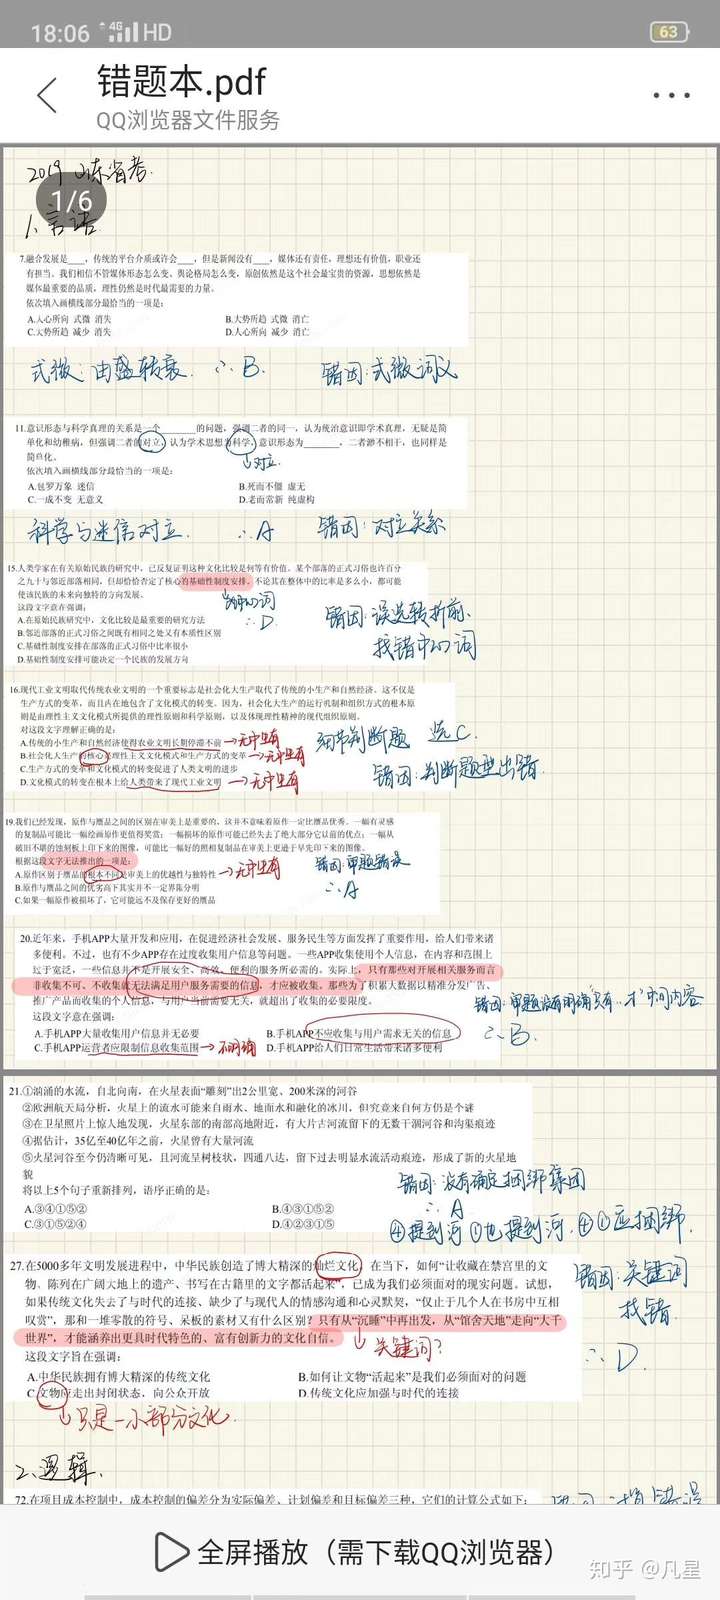 18:06 4G HD 63
错题本.pdf
QQ浏览器文件服务
2019 山东省考.
1/6
1.言语
7.融合发展是____，传统的平台介质或许会____，但是新闻没有____，媒体还有责任，理想还有价值，职业还
有担当。我们相信不管媒体形态怎么变，舆论格局怎么变，原创依然是这个社会最宝贵的资源，思想依然是
媒体最重要的品质，理性仍然是时代最需要的力量。
依次填入画横线部分最恰当的一项是：
A.人心所向 式微 消失 B.大势所趋 式微 消亡
C.大势所趋 减少 消失 D.人心所向 减少 消亡
式微：由盛转衰. ∴B. 错因：式微词义
11.意识形态与科学真理的关系是一个________的问题，强调二者的同一，认为统治意识即学术真理，无疑是简
单化和幼稚病，但强调二者的对立，认为学术思想为科学，意识形态为________，二者渺不相干，也同样是
简单化。
↓对立.
依次填入画横线部分最恰当的一项是：
A.包罗万象 迷信 B.死而不僵 虚无
C.一成不变 无意义 D.老而常新 纯虚构
科学与迷信对立. ∴A 错因：对立关系
15.人类学家在有关原始民族的研究中，已反复证明这种文化比较是何等有价值。某个部落的正式习俗也许百分
之九十与邻近部落相同，但却恰恰否定了核心的基础性制度安排，不论其在整体中的比率是多么小，都可能
使该民族的未来向独特的方向发展。
这段文字意在强调：
A.在原始民族研究中，文化比较是最重要的研究方法
B.邻近部落的正式习俗之间既有相同之处又有本质性区别
C.基础性制度安排在部落的正式习俗中比率很小
D.基础性制度安排可能决定一个民族的发展方向
↓中心词
∴D
错因：误选转折前.
找错中心词
16.现代工业文明取代传统农业文明的一个重要标志是社会化大生产取代了传统的小生产和自然经济。这不仅是
生产方式的变革，而且内在地包含了文化模式的转变。因为，社会化大生产的运行机制和组织方式的根本原
则是由理性主义文化模式所提供的理性原则和科学原则，以及体现理性精神的现代组织原则。
对这段文字理解正确的是：
A.传统的小生产和自然经济使得农业文明长期停滞不前 →无中生有
B.社会化大生产的核心是理性主义文化模式和生产方式的变革 →无中生有
C.生产方式的变革和文化模式的转变促进了人类文明的进步
D.文化模式的转变在根本上给人类带来了现代工业文明 →无中生有
细节判断题 选C.
错因：判断题型出错.
19.我们已经发现，原作与赝品之间的区别在审美上是重要的，这并不意味着原作一定比赝品优秀。一幅有灵感
的复制品可能比一幅绘画原作更值得奖赏；一幅损坏的原作可能已经失去了绝大部分它以前的优点；一幅从
破旧不堪的蚀刻板上印下来的图像，可能比一幅好的照相复制品在审美上更逊于早先印下来的图像。
根据这段文字无法推出的一项是：
A.原作区别于赝品的根本不同是审美上的优越性与独特性 →无中生有
B.原作与赝品之间的优劣高下其实并不一定界限分明
C.如果一幅原作被损坏了，它可能远不及保存更好的赝品
错因：审题错误
∴A
20.近年来，手机APP大量开发和应用，在促进经济社会发展、服务民生等方面发挥了重要作用，给人们带来诸
多便利。不过，也有不少APP存在过度收集用户信息等问题。一些APP收集使用个人信息，在内容和范围上
过于宽泛，一些信息并不是开展安全、高效、便利的服务所必需的。实际上，只有那些对开展相关服务而言
非收集不可、不收集就无法满足用户服务需要的信息，才应被收集。那些为了积累大数据以精准分发广告、
推广产品而收集的个人信息，与用户当前需要无关，就超出了收集的必要限度。
这段文字意在强调：
A.手机APP大量收集用户信息并无必要 B.手机APP不应收集与用户需求无关的信息
C.手机APP运营者应限制信息收集范围 →不明确 D.手机APP给人们日常生活带来诸多便利
错因：审题没有明确只有…才中间内容
∴B.
21.①汹涌的水流，自北向南，在火星表面“雕刻”出2公里宽、200米深的河谷
②欧洲航天局分析，火星上的流水可能来自雨水、地面水和融化的冰川，但究竟来自何方仍是个谜
③在卫星照片上惊人地发现，火星东部的南部高地附近，有大片古河流留下的无数干涸河谷和沟渠痕迹
④据估计，35亿至40亿年之前，火星曾有大量河流
⑤火星河谷至今仍清晰可见，且河流呈树枝状，四通八达，留下过去明显水流活动痕迹，形成了新的火星地
貌
将以上5个句子重新排列，语序正确的是：
A.③④①⑤② B.④③①⑤②
C.③①⑤②④ D.④②③①⑤
错因：没有确定捆绑集团
∴A
④提到河 ①也提到河. ④①应捆绑.
27.在5000多年文明发展进程中，中华民族创造了博大精深的灿烂文化，在当下，如何“让收藏在禁宫里的文
物、陈列在广阔大地上的遗产、书写在古籍里的文字都活起来”，已成为我们必须面对的现实问题。试想，
如果传统文化失去了与时代的连接、缺少了与现代人的情感沟通和心灵默契，“仅止于几个人在书房中互相
叹赏”，那和一堆零散的符号、呆板的素材又有什么区别？只有从“沉睡”中再出发，从“馆舍天地”走向“大千
世界”，才能涵养出更具时代特色的、富有创新力的文化自信。
↓关键词？
这段文字旨在强调：
A.中华民族拥有博大精深的传统文化 B.如何让文物“活起来”是我们必须面对的问题
C.文物应走出封闭状态，向公众开放 D.传统文化应加强与时代的连接
↓只是一小部分文化.
错因：关键词
找错.
∴D.
2.逻辑.
72.在项目成本控制中，成本控制的偏差分为实际偏差、计划偏差和目标偏差三种，它们的计算公式如下：
全屏播放（需下载QQ浏览器）
知乎 @凡星